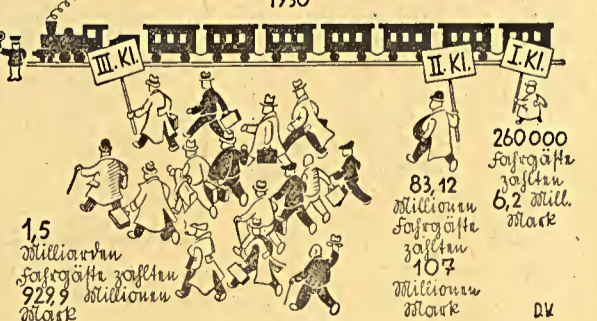 1930
III. Kl.
II. Kl.
I. Kl.
1,5
Milliarden
Fahrgäste zahlten
929,9 Millionen
Mark
83,12
Millionen
Fahrgäste
zahlten
107
Millionen
Mark
260000
Fahrgäste
zahlten
6,2 Mill.
Mark
D.V.